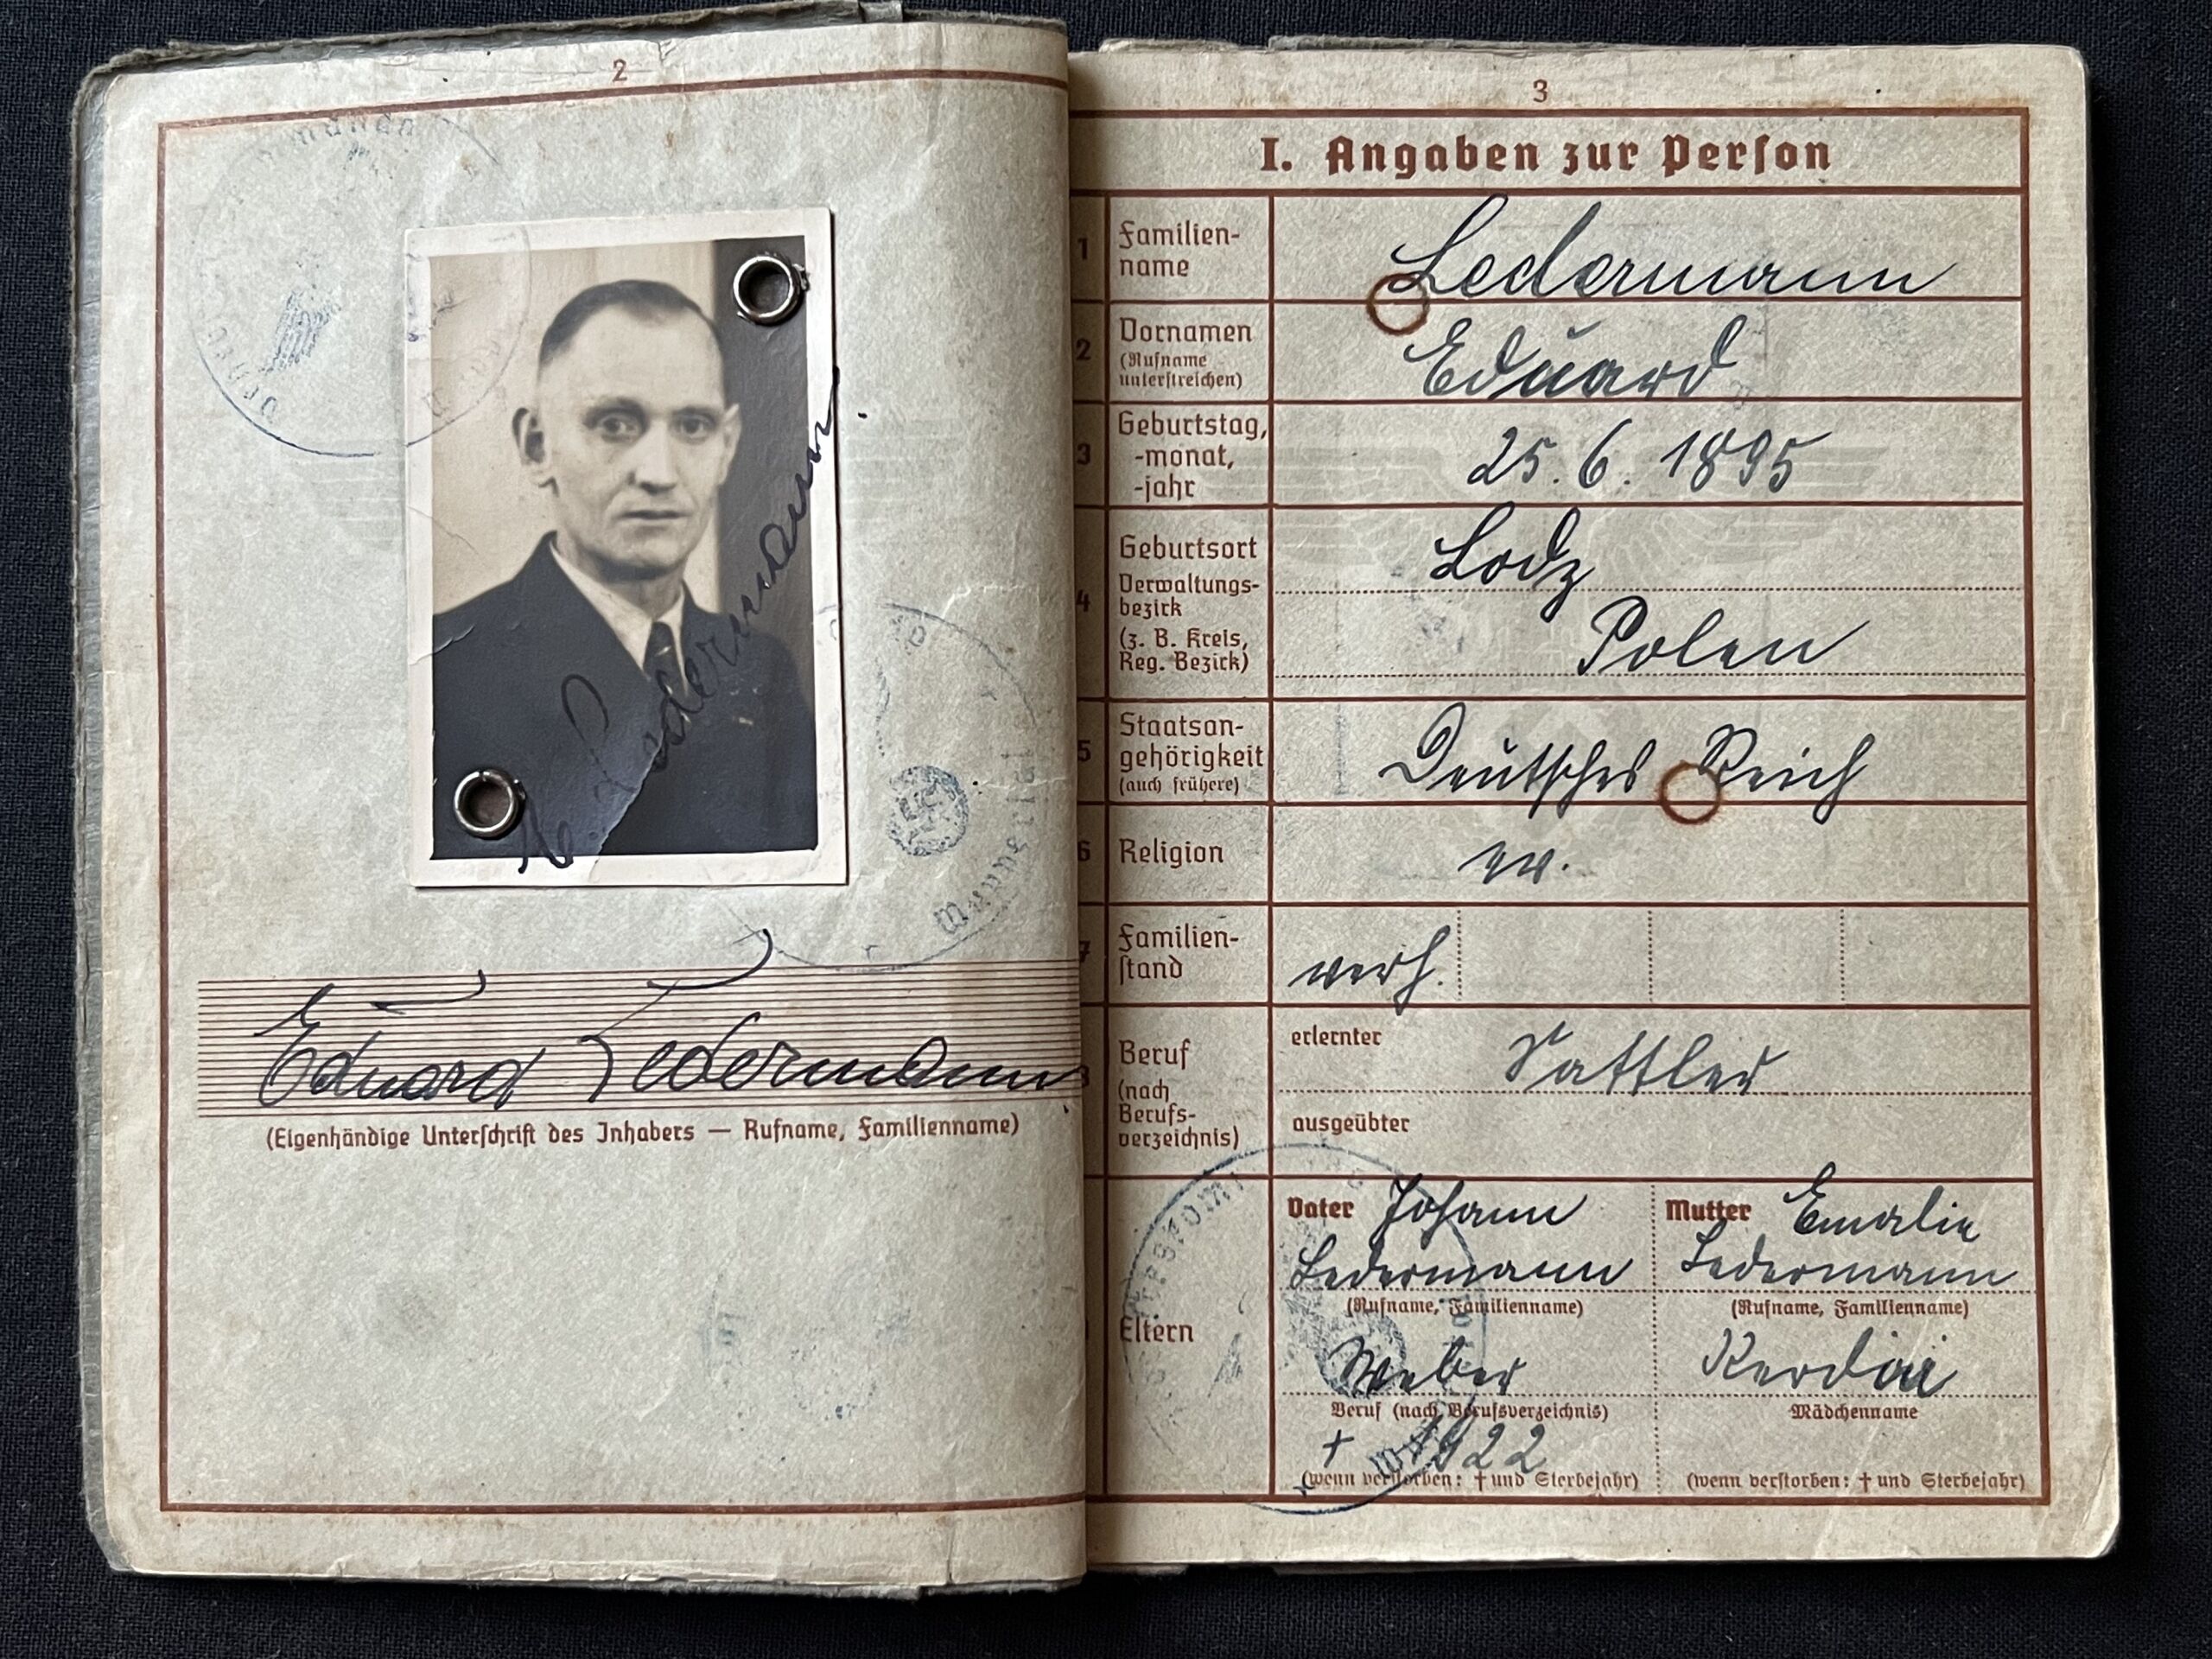 2
E. Ledermann
Eduard Ledermann
(Eigenhändige Unterschrift des Inhabers — Rufname, Familienname)
3
I. Angaben zur Person
1 Familien-
name
Ledermann
2 Vornamen
(Rufname
unterstreichen)
Eduard
3 Geburtstag,
-monat,
-jahr
25. 6. 1895
4 Geburtsort
Verwaltungs-
bezirk
(z. B. Kreis,
Reg. Bezirk)
Lodz
Polen
5 Staatsan-
gehörigkeit
(auch frühere)
Deutsches Reich
6 Religion
ev.
7 Familien-
stand
verh.
8 Beruf
(nach
Berufs-
verzeichnis)
erlernter
Sattler
ausgeübter
Eltern
Vater Johann
Ledermann
(Rufname, Familienname)
Weber
Beruf (nach Berufsverzeichnis)
† 1922
(wenn verstorben: † und Sterbejahr)
Mutter Emalie
Ledermann
(Rufname, Familienname)
Mädchenname
(wenn verstorben: † und Sterbejahr)